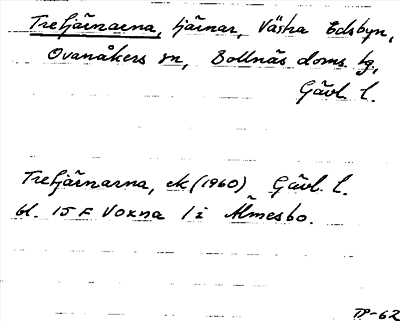 Tretjärnarna, tjärnar, Västra Edsbyn,
Ovanåkers sn, Bollnäs doms. tg,
Gävl. l.
Tretjärnarna, ek (1960) Gävl. l.
bl. 15 F Voxna 1 i Älmesbo.
TP-62